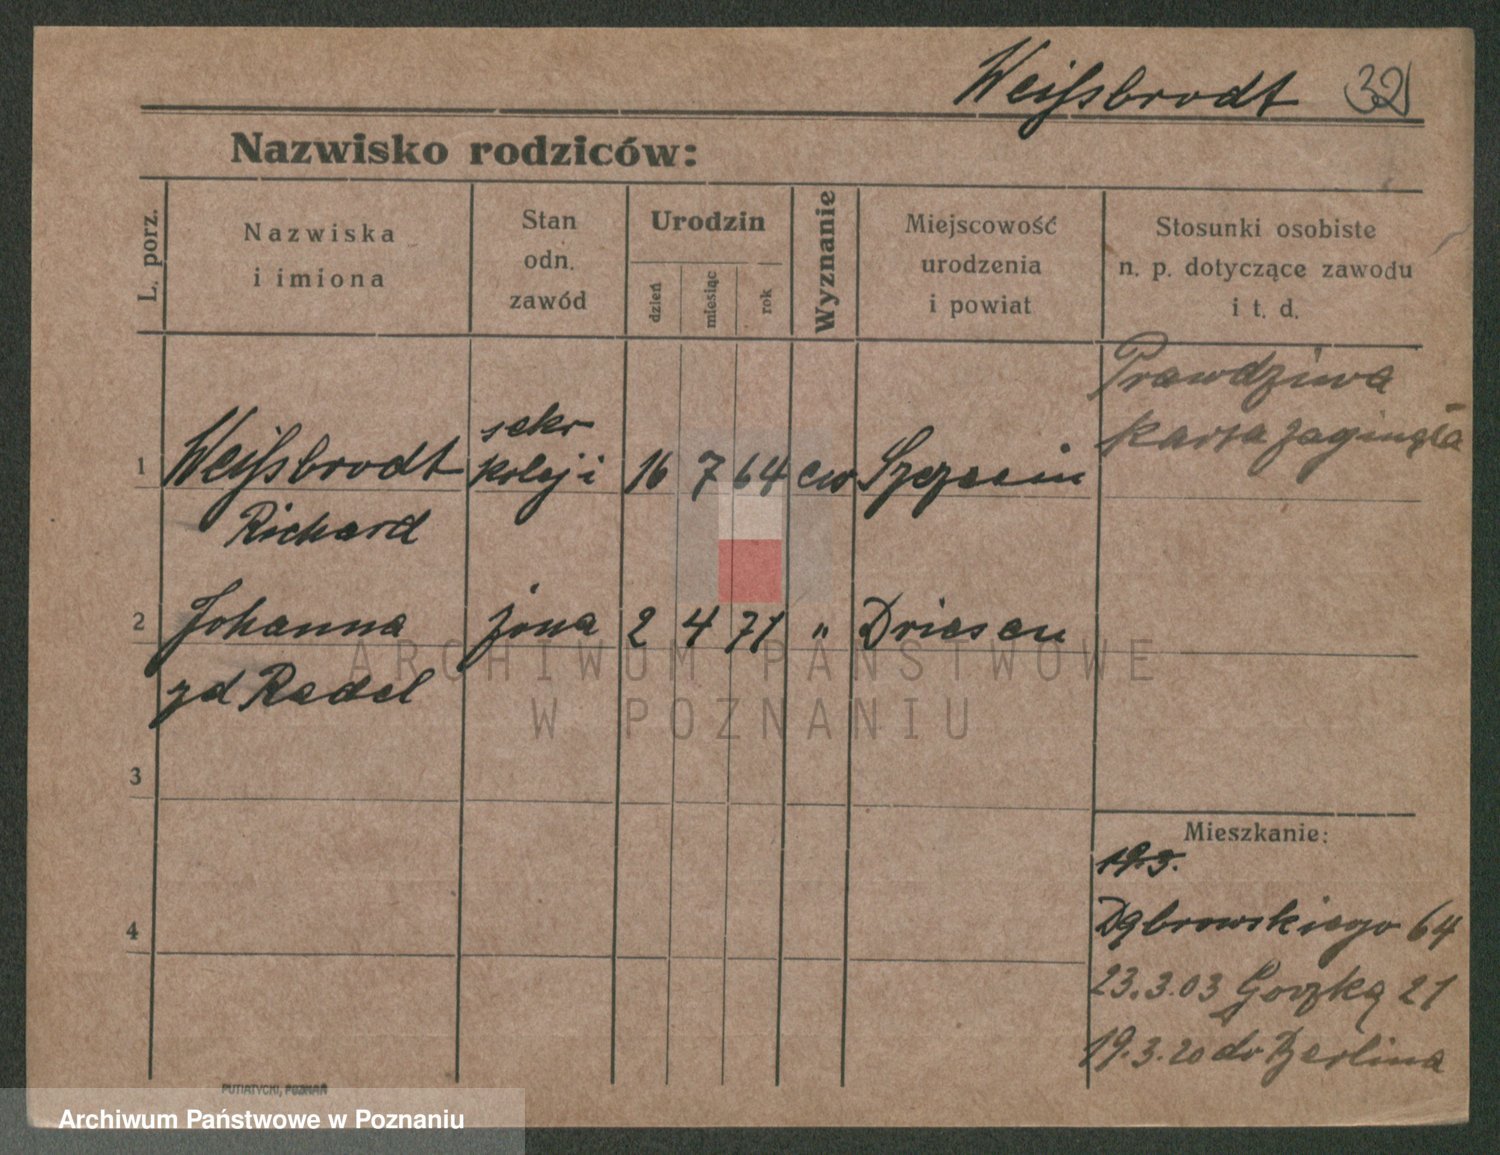 Weißbrodt 32
Nazwisko rodziców:
L. porz.
Nazwiska
i imiona
Stan
odn.
zawód
Urodzin
dzień
miesiąc
rok
Wyznanie
Miejscowość
urodzenia
i powiat
Stosunki osobiste
n. p. dotyczące zawodu
i t. d.
Prawdziwa
karta zaginęła
sekr
1 Weißbrodt koleji 16 7 64 ew Szczecin
Richard
2 Johanna żona 2 4 71 " Driesen
zd Radel
3
4
Mieszkanie:
Dąbrowskiego 64
23.3.03 Gorzka 21
19.3.20 do Berlina
PUTIATYCKI, POZNAŃ
ARCHIWUM PAŃSTWOWE
W POZNANIU
Archiwum Państwowe w Poznaniu